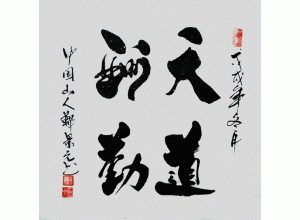 天道
酬勤
戊戌年冬月
中国山人郑景元书